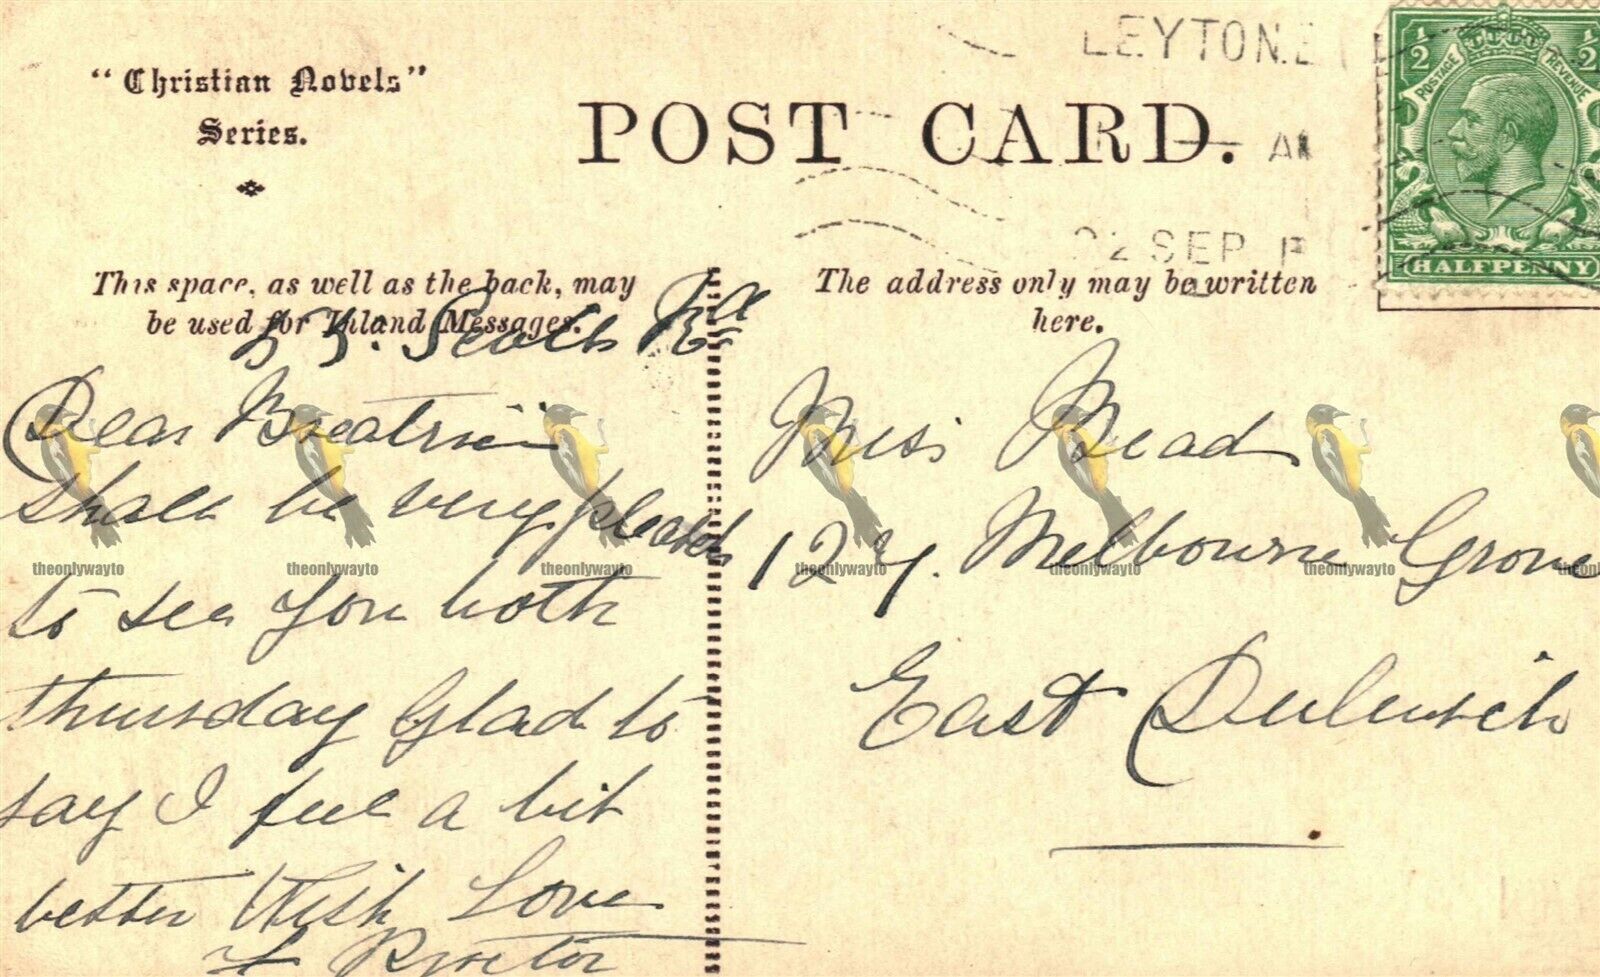 "Christian Novels"
Series.
POST CARD.
LEYTON.E
22 SEP
POSTAGE
REVENUE
½
½
HALFPENNY
This space, as well as the back, may
be used for Inland Messages.
The address only may be written
here.
Rd
Dear Beatrice
shall be very pleased
to see you both
thursday Glad to
say I feel a bit
better With Love
F Proctor
Miss Bead
127. Melbourne Grove
East Dulwich
theonlywayto
theonlywayto
theonlywayto
theonlywayto
theonlywayto
theonlywayto